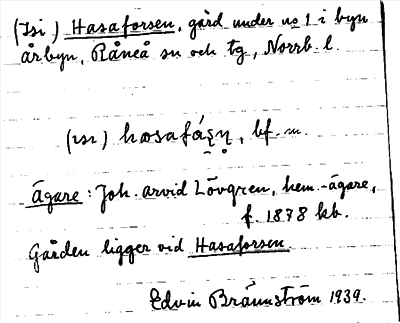 (Isi) Hasaforsen, gård under no 1 i byn
årbyn, Råneå sn och tg, Norrb. l.
(ısı) hasafá, bf. m.
Ägare: Joh. Arvid Lövgren, hem.-ägare,
f. 1878 kb.
Gården ligger vid Hasaforsen
Edvin Brännström 1939.